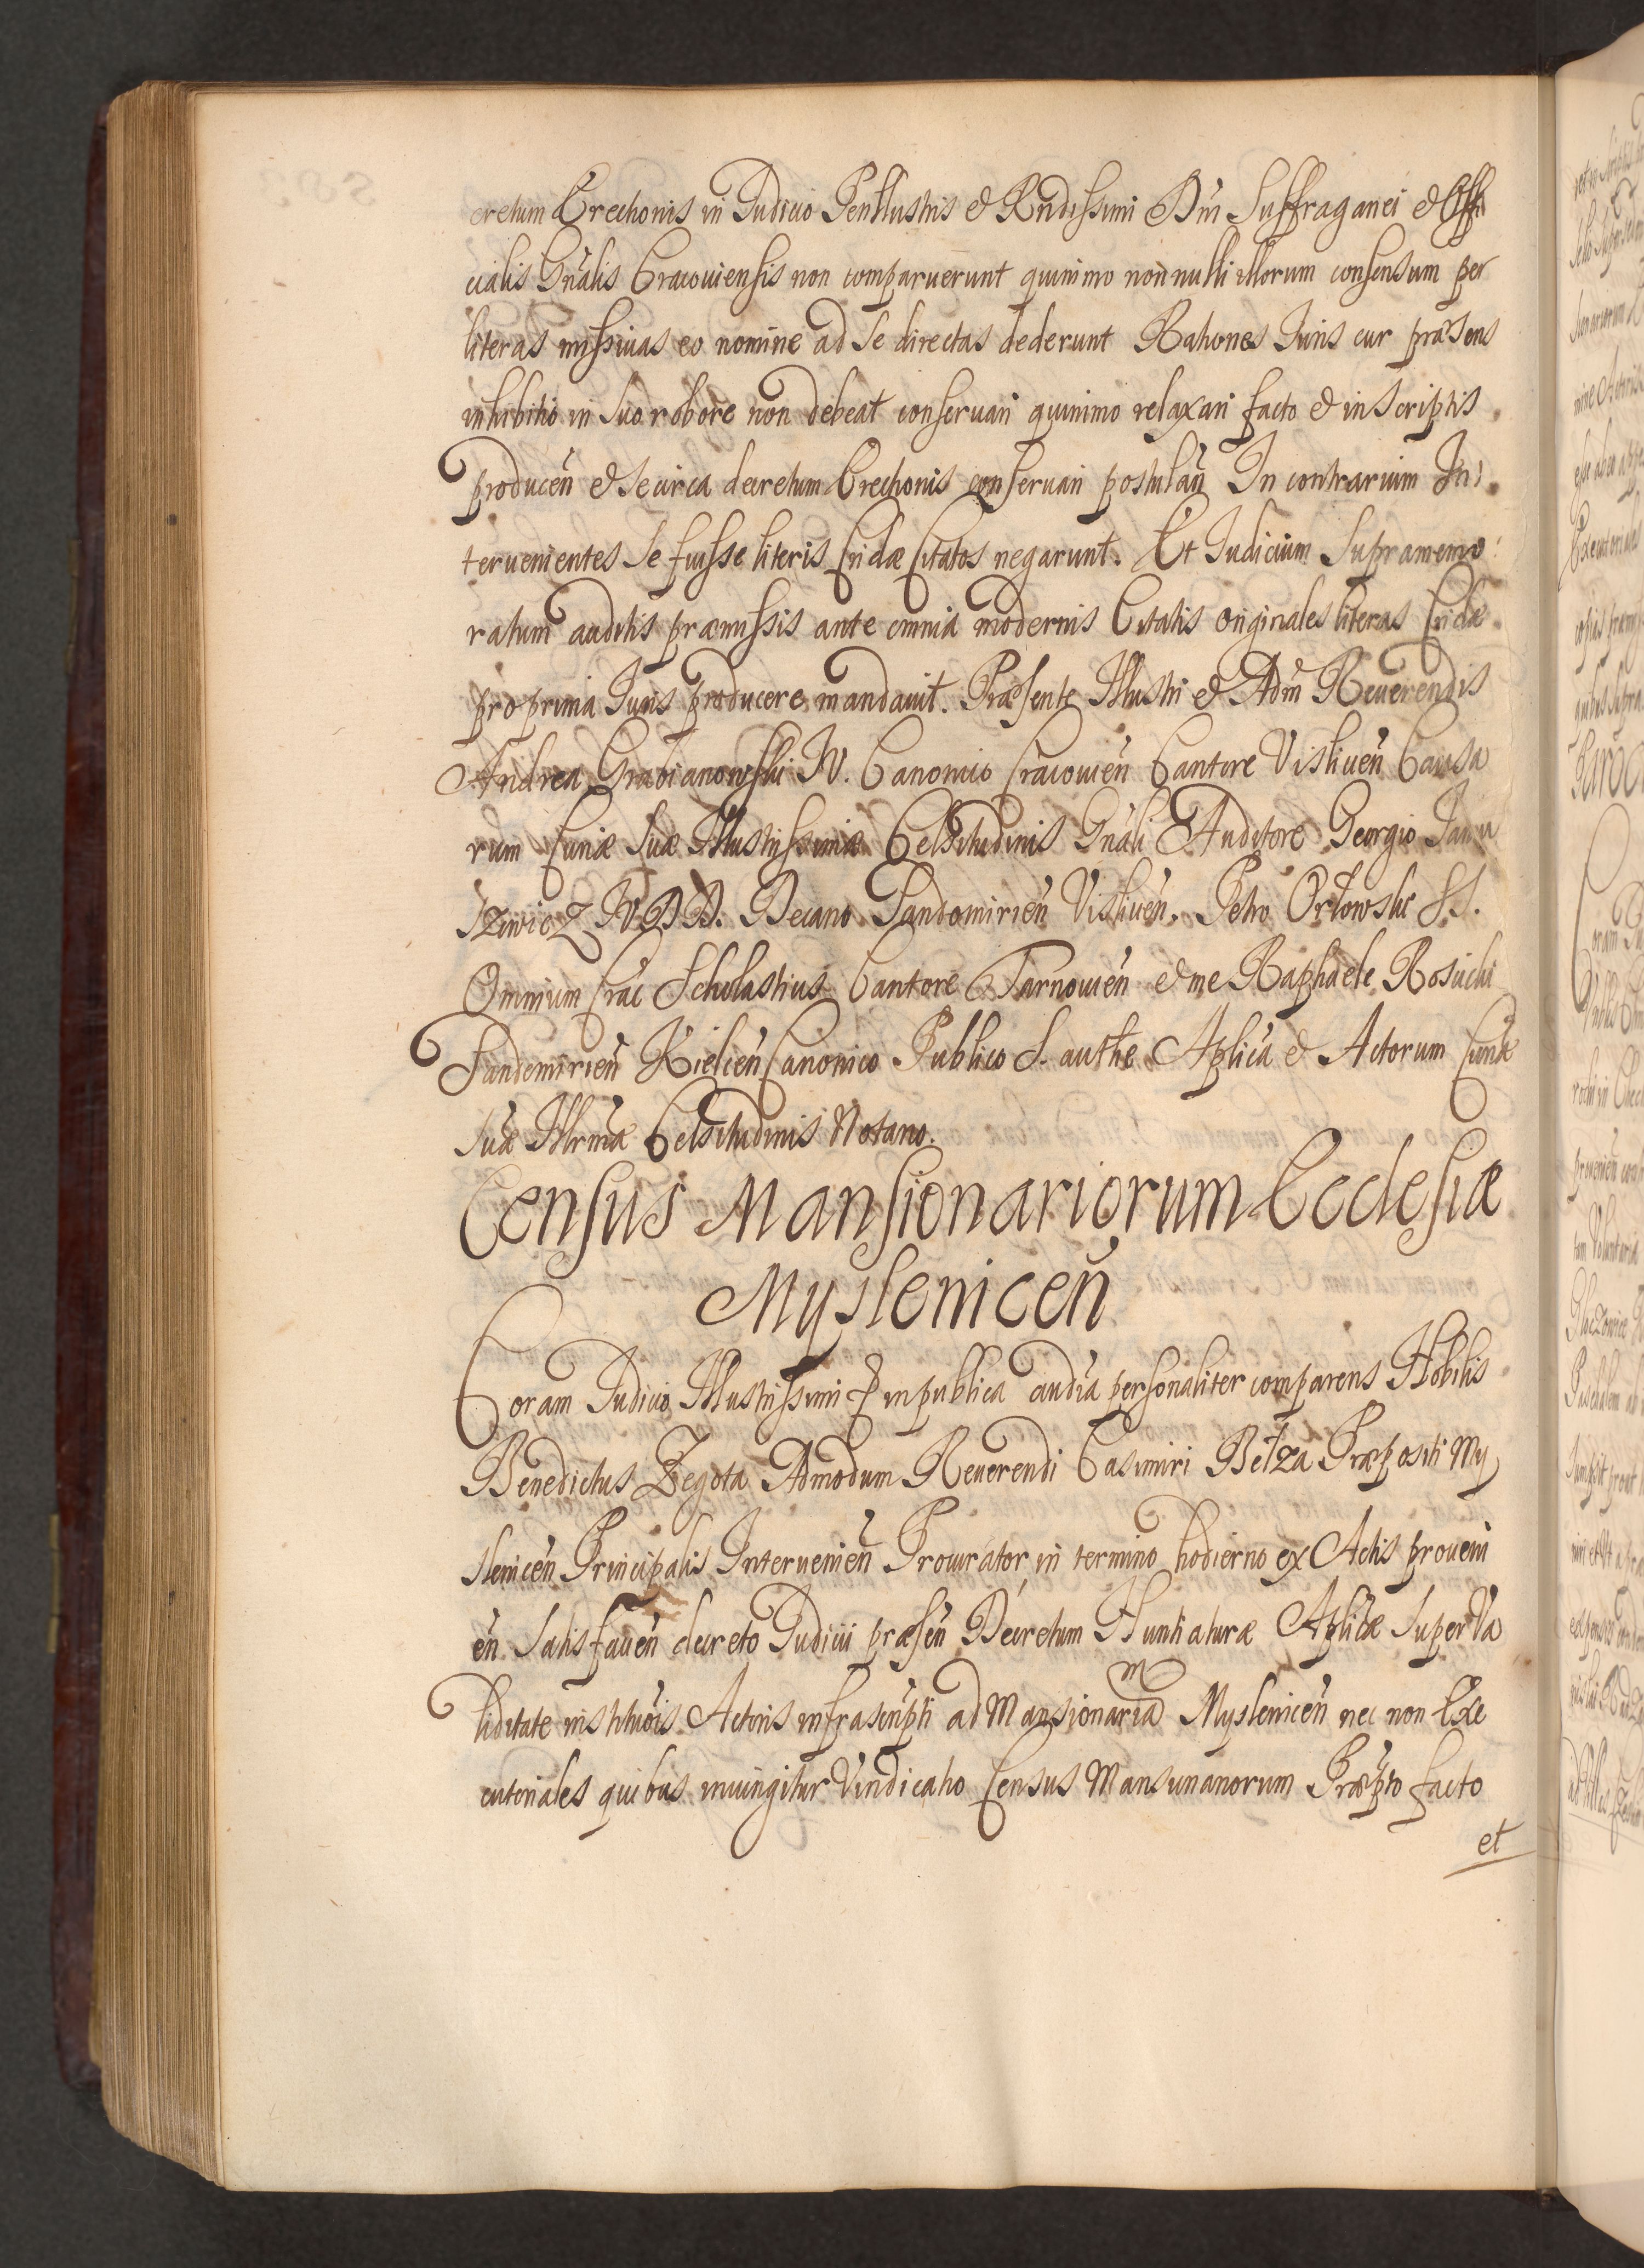 cretum Erectionis in Judicio Perillustris & Rndissimi Dni Suffraganei & Offi
cialis Gnalis Cracoviensis non comparuerunt quinimo nonnulli illorum consensum per
literas missivas eo nomine ad se directas dederunt Rationes Juris cur præsens
inhibitio in suo robore non debeat conservari quinimo relaxari facto & in scriptis
producen & se circa decretum Erectionis conservari postulan In contrarium In
tervenientes se fuisse literis Cridæ Citatos negarunt. Et Judicium supramemo
ratum auditis præmissis ante omnia modernis Citatis originales literas Cridæ
pro prima Juris producere mandavit. Præsente Illustri & Adm Reverendis
Andrea Grabianowski IV. Canonico Cracovien Cantore Vislicen Causa
rum Curiæ suæ Illustrissimæ Celsitudinis Gnali Auditore Georgio Janu
szewicz IVDD. Decano Sandomirien Vislicen. Petro Orłowski SS.
Omnium Crac Scholastico Cantore Tarnovien & me Raphaele Rosicki
Sandomirien Kielcen Canonico Publico S. authe Aplica & Actorum Curiæ
suæ Illrmæ Celsitudinis Notario.
Census Mansionariorum Ecclesiæ
Myslenicen
Coram Judicio Illustrissimi & in publica audia personaliter comparens Nobilis
Benedictus Zegota Admodum Reverendi Casimiri Bełza Præpositi My
slenicen Principalis Intervenien Procurator in termino hodierno ex Actis proveni
en satisfacien decreto Judicii præsen Decretum Nuntiaturæ Aplicæ super Va
liditate institutiois Actoris infrascripti ad Mansionariam Myslenicen nec non Exe
cutoriales quibus iniungitur Vindicatio Census Mansionariorum Præpto facto
et